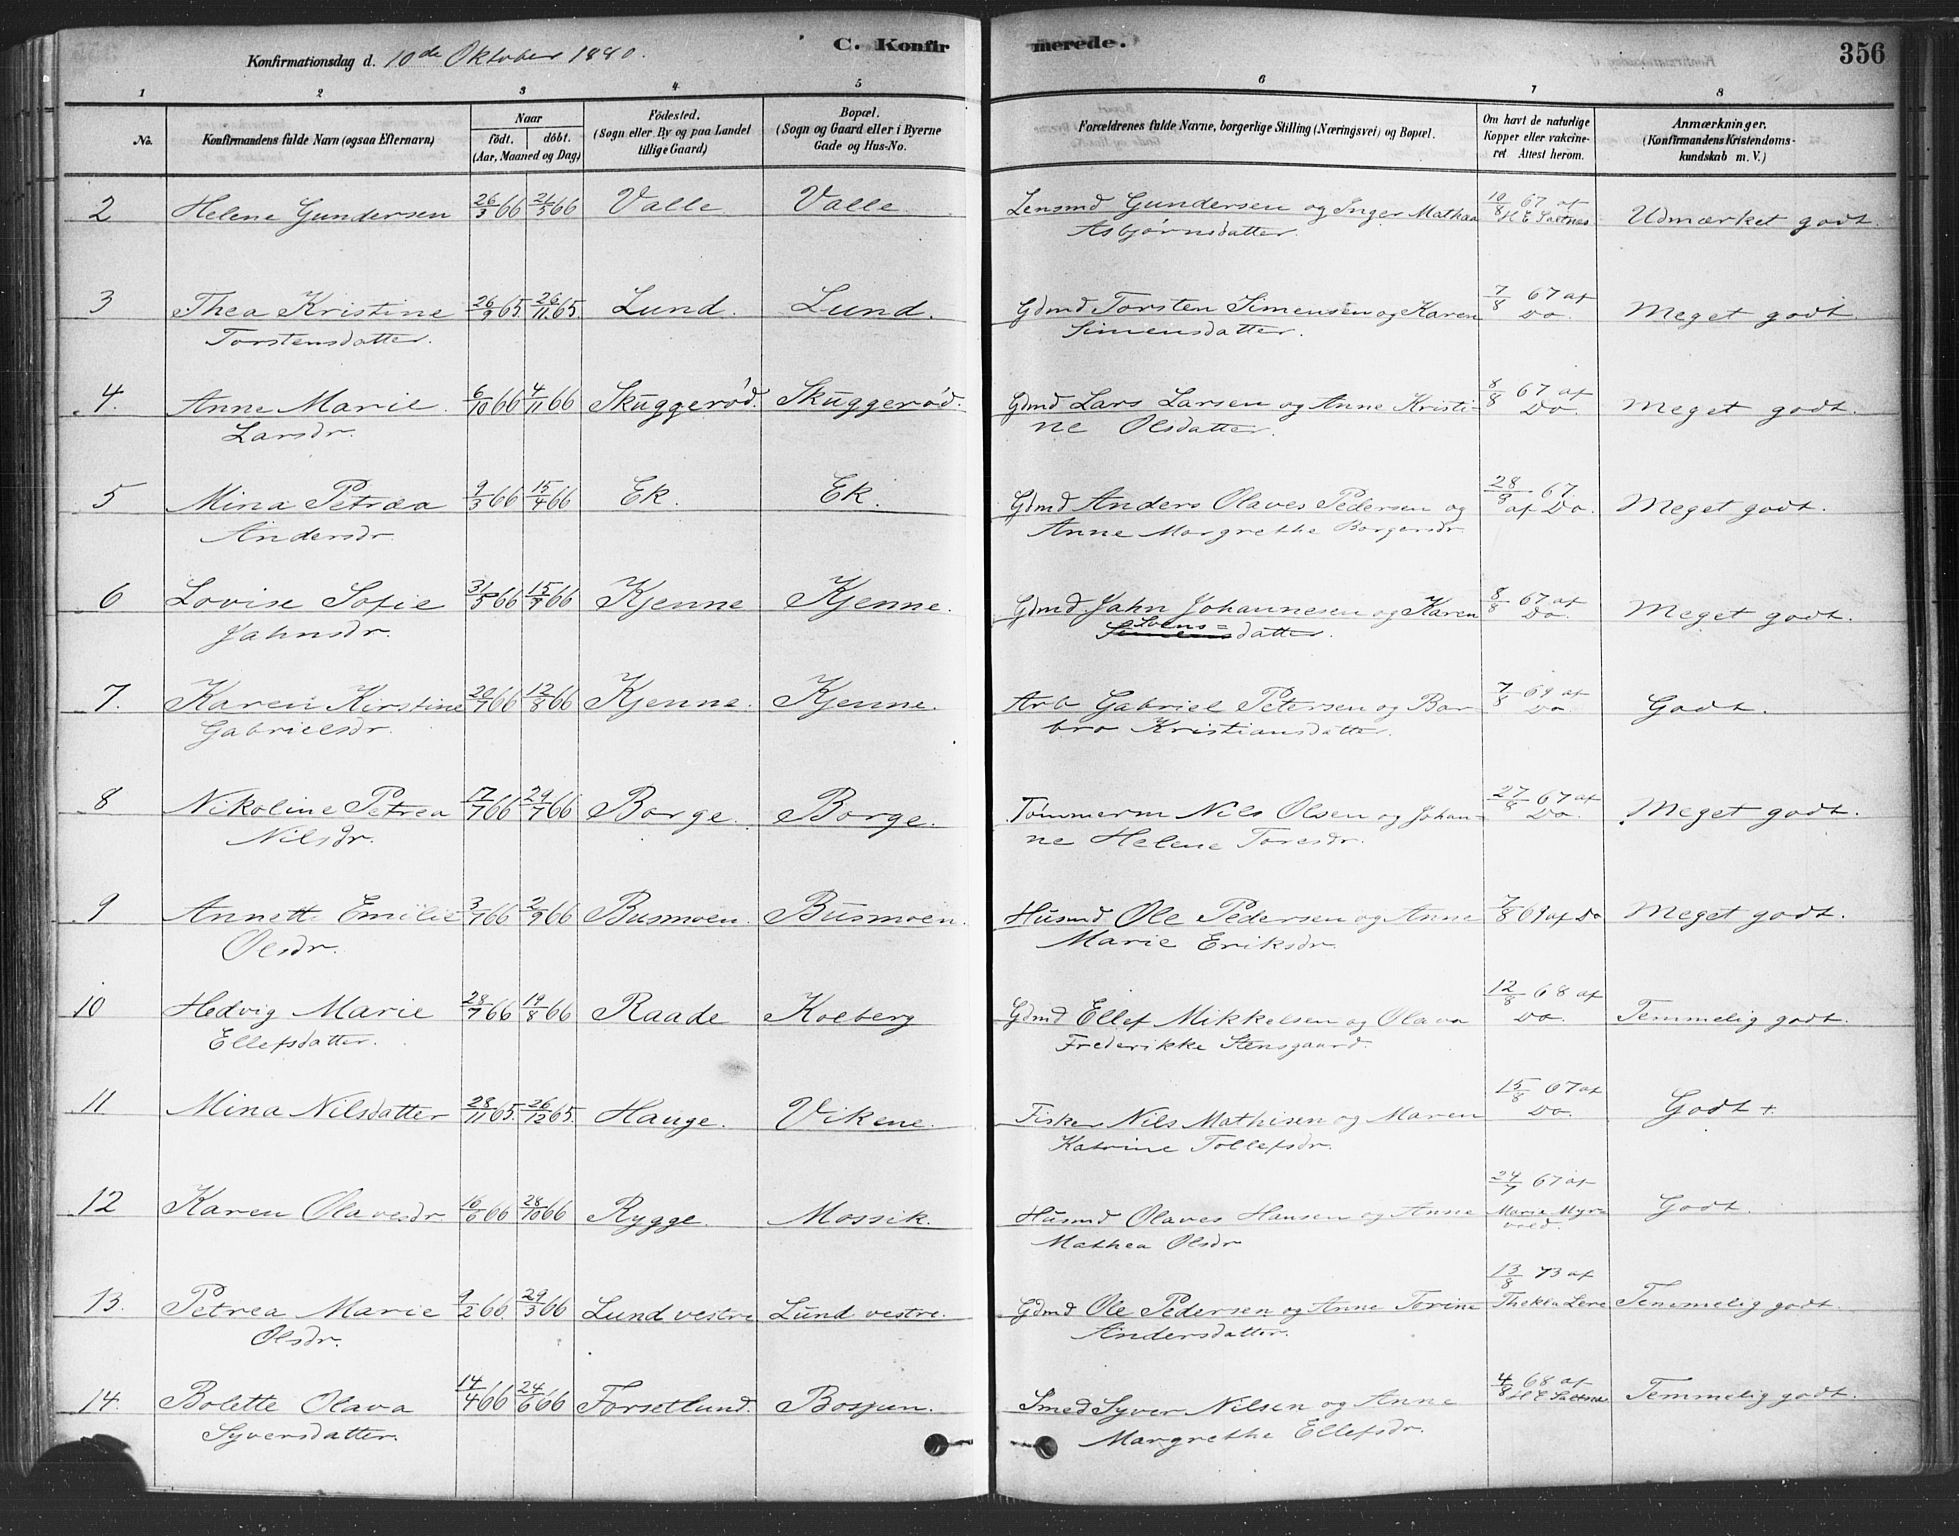 Konfirmationsdag d. 10de Oktober 1880.
C. Konfirmerede.
356
1 2 3 4 5 6 7 8
No.
Konfirmandens fulde Navn (ogsaa Efternavn)
Naar
født. døbt.
(Aar, Maaned og Dag)
Fødested.
(Sogn eller By og paa Landet
tillige Gaard)
Bopæl.
(Sogn og Gaard eller i Byerne
Gade og Hus-No.
Forældrenes fulde Navne, borgerlige Stilling (Næringsvei) og Bopæl.
Om havt de naturlige
Kopper eller vakcine-
ret Attest herom.
Anmærkninger.
(Konfirmandens Kristendoms-
kundskab m. V.)
2 Helene Gundersen 26/3 66 21/5 66 Valle Valle Lensmd Gundersen og Inger Mathea 10/8 67 af H E Saltnes Udmærket godt.
Asbjørnsdatter.
3 Thea Kristine 26/9 65. 26/11 65. Lund. Lund. Gdmd Torsten Simensen og Karen 7/8 67 af Do. Meget godt
Torstensdatter. Simensdatter.
4. Anne Marie 6/10 66 4/11 66 Skuggerød. Skuggerød. Gdmd Lars Larsen og Anne Kristi- 8/8 67 af Do. Meget godt.
Larsdr. ne Olsdatter.
5 Mina Petrea 9/3 66 15/4 66 Ek. Ek. Gdmd Anders Olaves Pedersen og 28/8 67. af Do. Meget godt.
Andersdr. Anne Margrethe Borgersdr.
6 Lovise Sofie 31/5 66 15/7 66 Kjenne Kjenne. Gdmd. Jahn Johannesen og Karen 8/8 67 af Do. Meget godt.
Jahnsdr. Svens=datter.
7. Karen Kirstine 20/7 66 12/8 66 Kjenne. Kjenne. Arb Gabriel Petersen og Bar- 7/8 69 af Do. Godt.
Gabrielsdr. bro Kristiansdatter.
8 Nikoline Petrea 17/7 66 29/7 66 Borge. Borge. Tømmerm Nils Olsen og Johan- 27/8 67 af Do. Meget godt.
Nilsdr. ne Helene Toresdr.
9 Annette Emilie 3/7 66 2/9 66 Busmoen. Busmoen. Husmd Ole Pedersen og Anne 7/8 69 af Do Meget godt.
Olsdr. Marie Eriksdr.
10 Hedvig Marie 28/7 66 19/8 66 Raade Kolberg Gdmd Ellef Mikkelsen og Olava 12/8 68 af Do. Temmelig godt.
Ellefsdatter. Frederikke Stensgaard.
11. Mina Nilsdatter 28/11 65. 26/12 65. Hauge. Vikene. Fisker Nils Mathisen og Maren 15/8 67 af Do. Godt +
Katrine Tollefsdr.
12 Karen Olavesdr 16/6 66 28/10 66 Rygge. Mossik. Husmd Olaves Hansen og Anne 24/7 67 af Marie Myrvold. Godt
Mathea Olsdr
13. Petrea Marie 9/2 66. 29/3 66 Lund vestre Lund vestre. Gdmd Ole Pedersen og Anne Torine 13/8 73 af Thekla Lere Temmelig godt.
Olsdr. Andersdatter.
14. Bolette Olava 14/4 66 24/6 66 Forsetlund. Bosjun. Smed Syver Nilsen og Anne 4/8 68 af H E Saltnes Temmelig godt.
Syversdatter. Margrethe Ellefsdr.